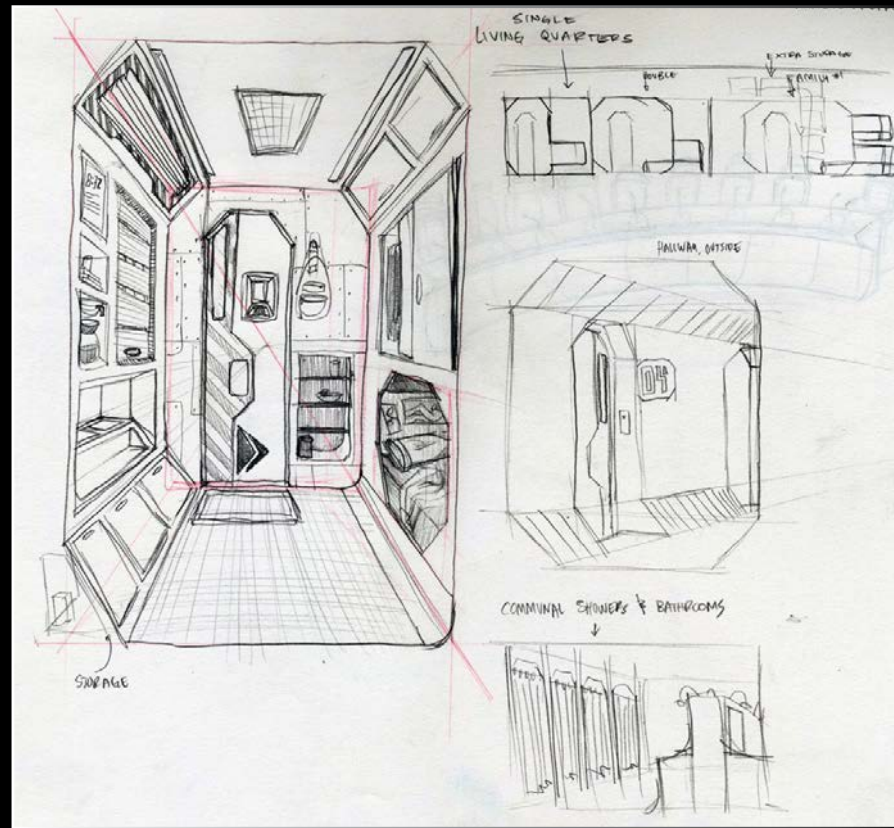 SINGLE
LIVING QUARTERS
EXTRA STORAGE
DOUBLE
FAMILY #1
HALLWAY, OUTSIDE
04
COMMUNAL SHOWERS & BATHROOMS
STORAGE